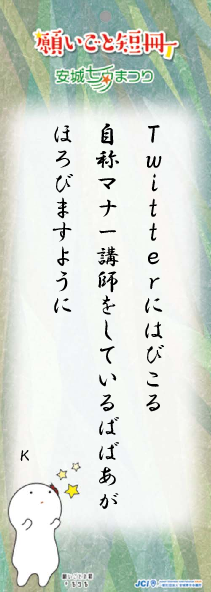 願いごと短冊
安城七夕まつり
Twitterにはびこる
自称マナー講師をしているばばあが
ほろびますように
K
JCI